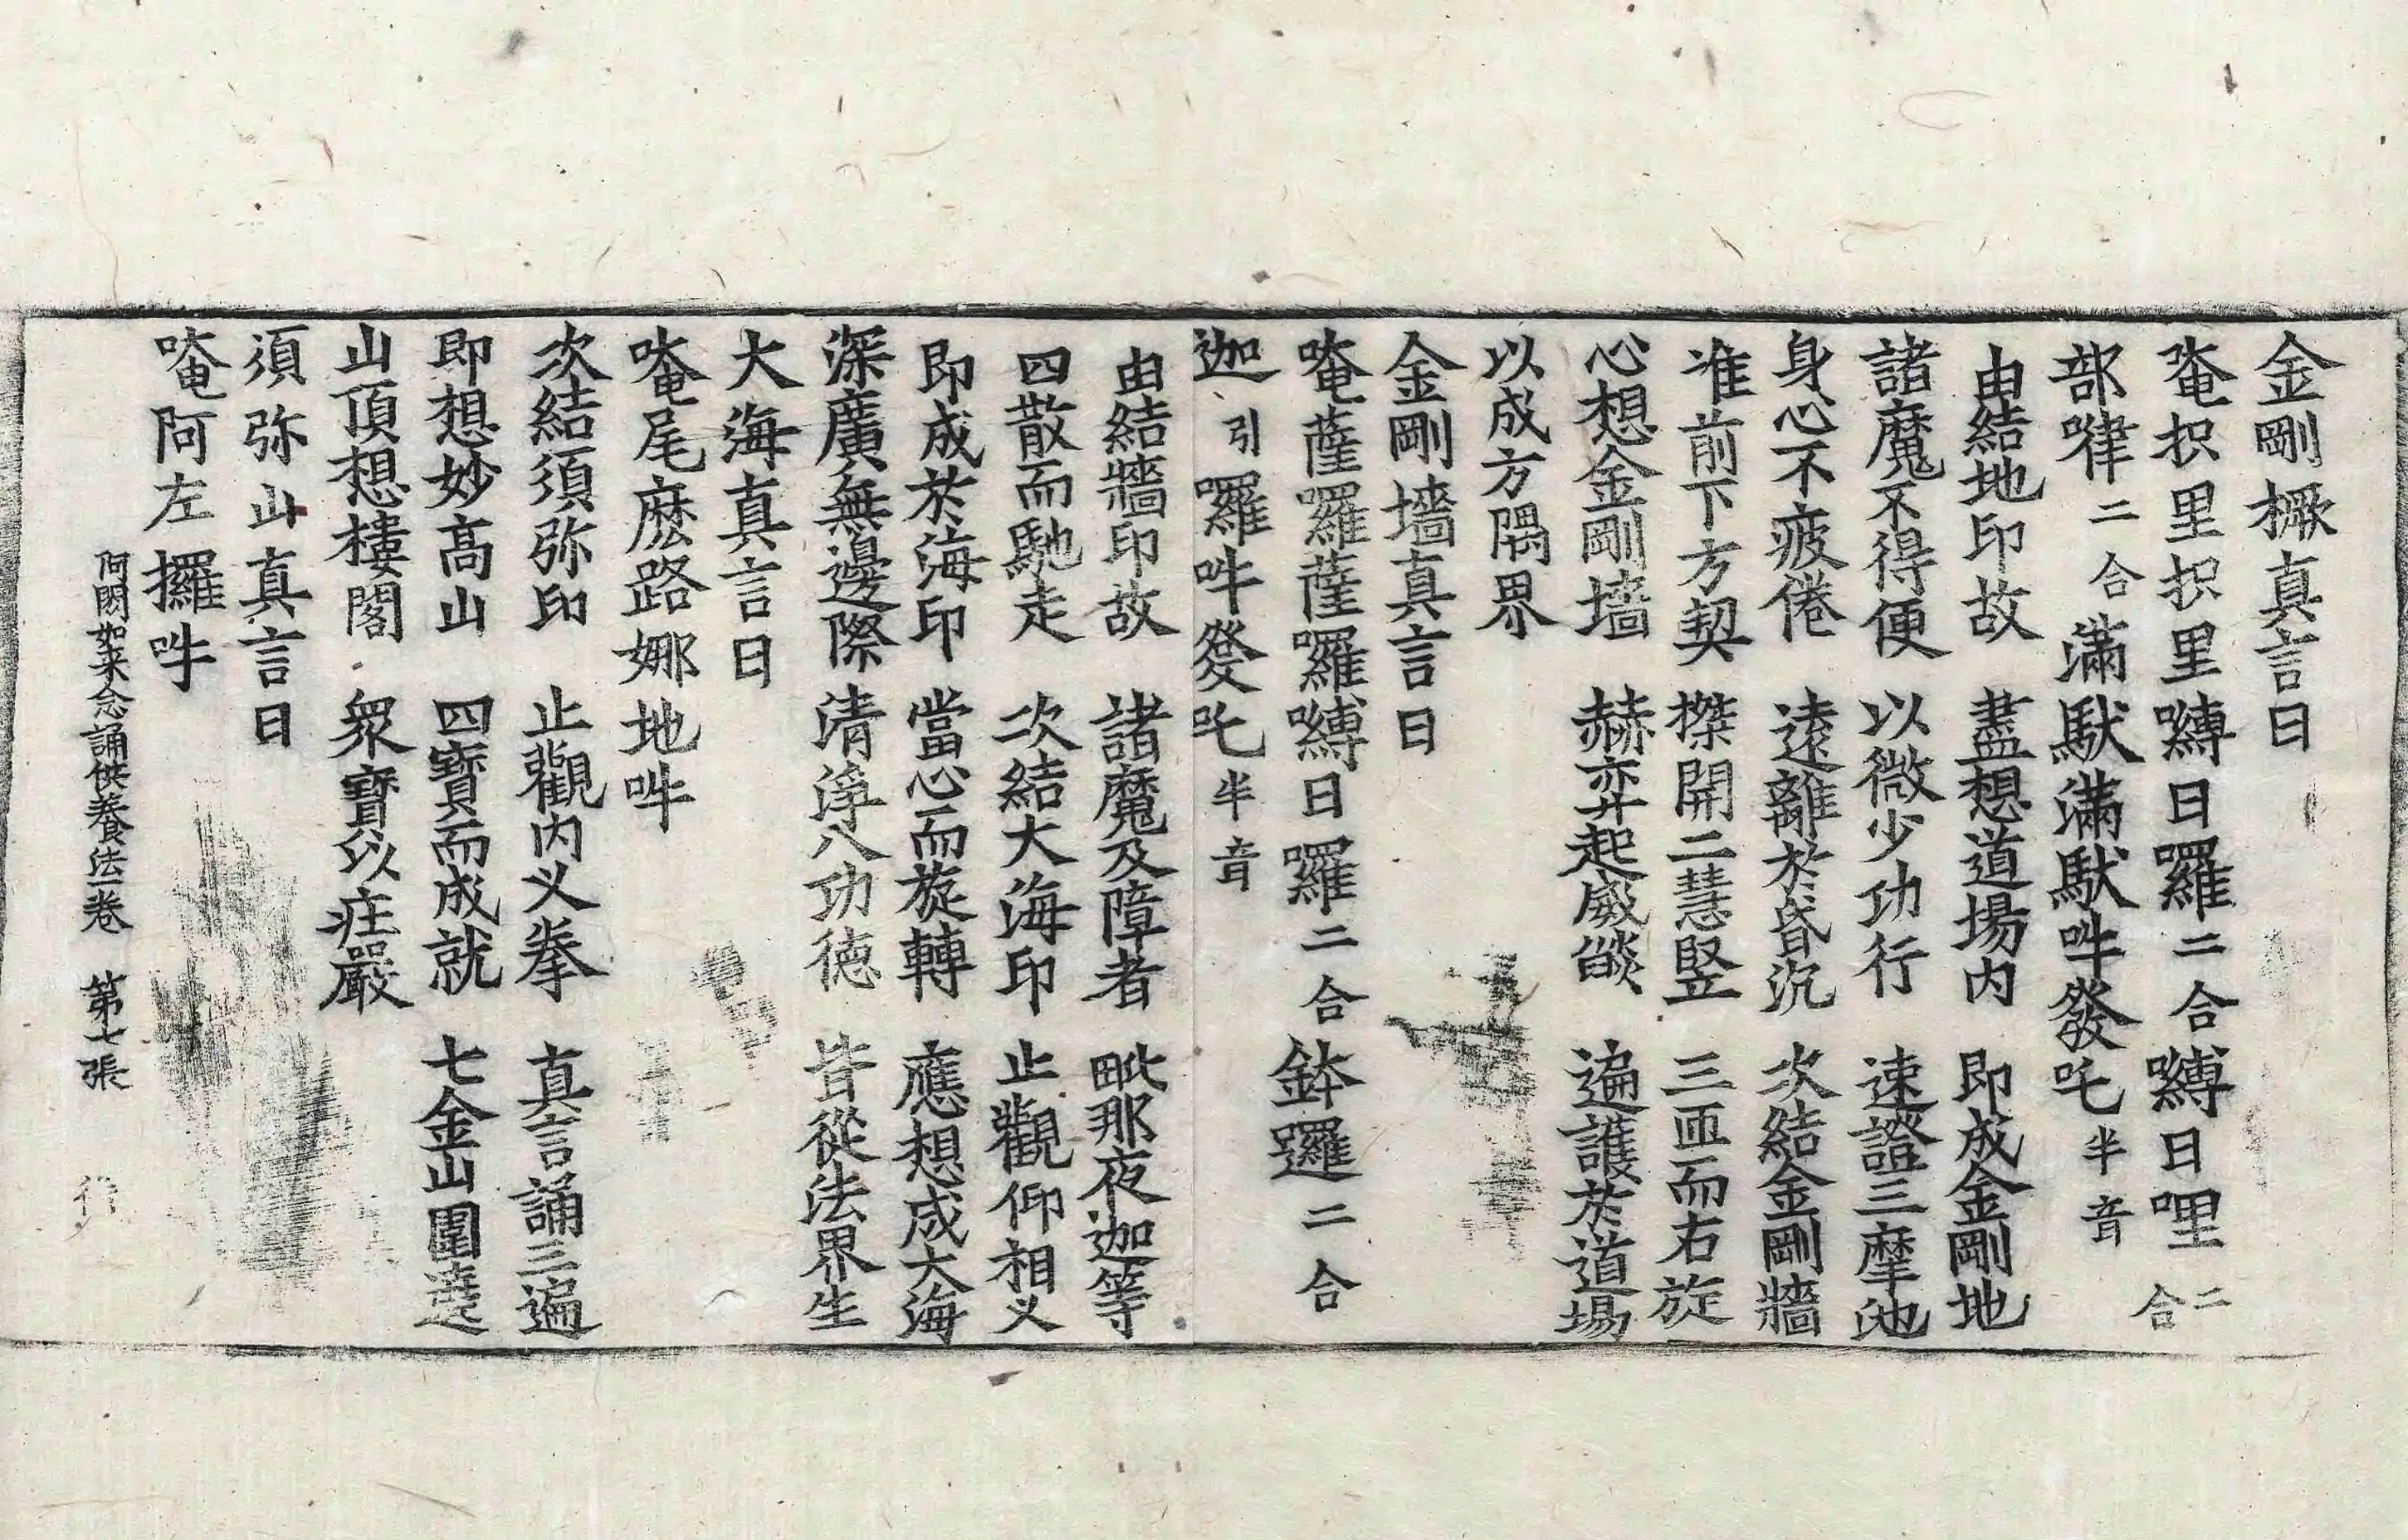 金剛橛真言曰
唵枳里枳里嚩日囉二合嚩日哩二合
部㗚二合滿馱滿馱吽發吒半音
由結地印故　盡想道場内　即成金剛地
諸魔不得便　以微少功行　速證三摩地
身心不疲倦　遠離於昏沉　次結金剛牆
准前下方契　搩開二慧竪　三匝而右旋
心想金剛墻　赫弈起威燄　遍護於道場
以成方隅界
金剛墻真言曰
唵薩囉薩囉嚩日囉二合鉢邏二合
迦引囉吽發吒半音
由結牆印故　諸魔及障者　毗那夜迦等
四散而馳走　次結大海印　止觀仰相叉
即成於海印　當心而旋轉　應想成大海
深廣無邊際　清淨八功德　皆從法界生
大海真言曰
唵尾麽路娜地吽
次結須弥印　止觀内叉拳　真言誦三遍
即想妙高山　四寶而成就　七金山圍遶
山頂想樓閣　衆寶以莊嚴
須弥山真言曰
唵阿左攞吽
阿閦如来念誦供養法一卷　第七張